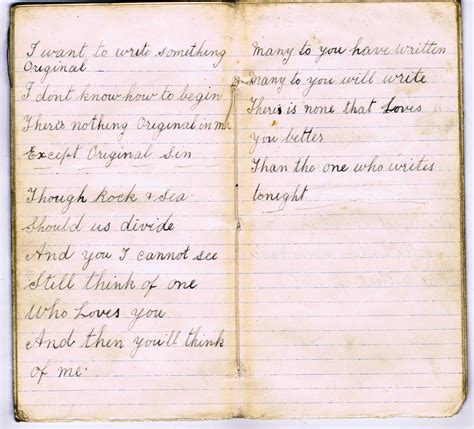 I want to write something
Original
I dont know how to begin
There's nothing Original in me
Except Original Sin
Though Rock & sea
Should us divide
And you I cannot see
Still think of one
Who Loves you
And then you'll think
of me.
Many to you have written
Many to you will write
There is none that Loves
you better
Than the one who writes
tonight